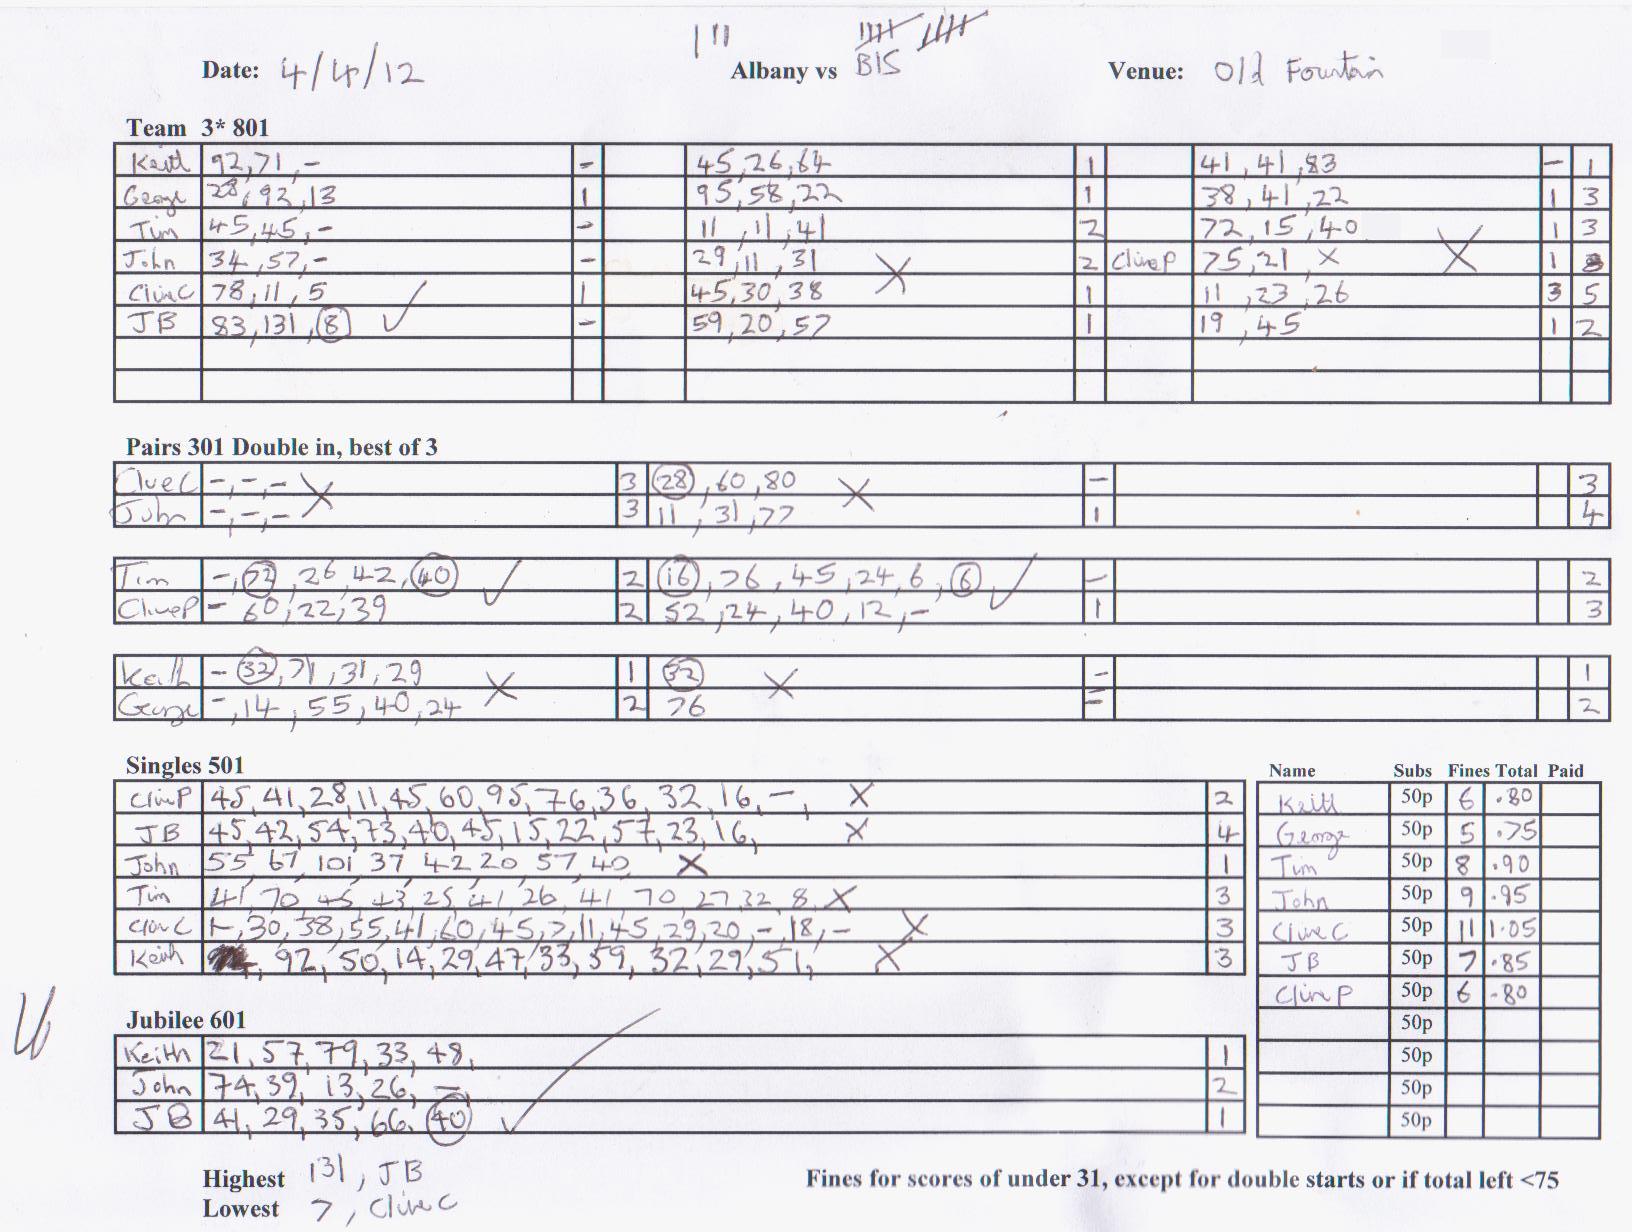 Date: 4/4/12 Albany vs BIS Venue: Old Fountain
Team 3* 801
Keith 92,71,- - 45,26,64 1 41,41,83 - 1
George 28,92,13 1 95,58,22 1 38,41,22 1 3
Tim 45,45,- - 11,11,41 2 72,15,40 1 3
John 34,57,- - 29,11,31 2 CliveP 75,21,X 1
CliveC 78,11,5 1 45,30,38 1 11,23,26 3 5
JB 83,131,8 - 59,20,57 1 19,45 1 2
Pairs 301 Double in, best of 3
CliveC -,-,- 3 28,60,80 - 3
John -,-,- 3 11,31,77 1 4
Tim -,22,26,42,40 2 16,76,45,24,6,6 - 2
CliveP - 60,22,39 2 52,24,40,12,- 1 3
Keith - 32,71,31,29 1 32 - 1
George -,14,55,40,24 2 76 - 2
Singles 501
CliveP 45,41,28,11,45,60,95,76,36,32,16,-, X 2
JB 45,42,54,73,40,45,15,22,57,23,16, X 4
John 55,67,101,37,42,20,57,40 X 1
Tim 41,70,45,43,25,41,26,41,70,27,32,8, X 3
CliveC 30,38,55,41,60,45,7,11,45,29,20,-,18,- X 3
Keith 92,50,14,29,47,33,59,32,29,51, X 3
Name Subs Fines Total Paid
Keith 50p 6 .80
George 50p 5 .75
Tim 50p 8 .90
John 50p 9 .95
CliveC 50p 11 1.05
JB 50p 7 .85
CliveP 50p 6 .80
50p
50p
50p
50p
Jubilee 601
Keith 21,57,79,33,48, 1
John 74,39,13,26,-, 2
JB 41,29,35,66,40 1
Highest 131, JB
Lowest 7, CliveC
Fines for scores of under 31, except for double starts or if total left <75